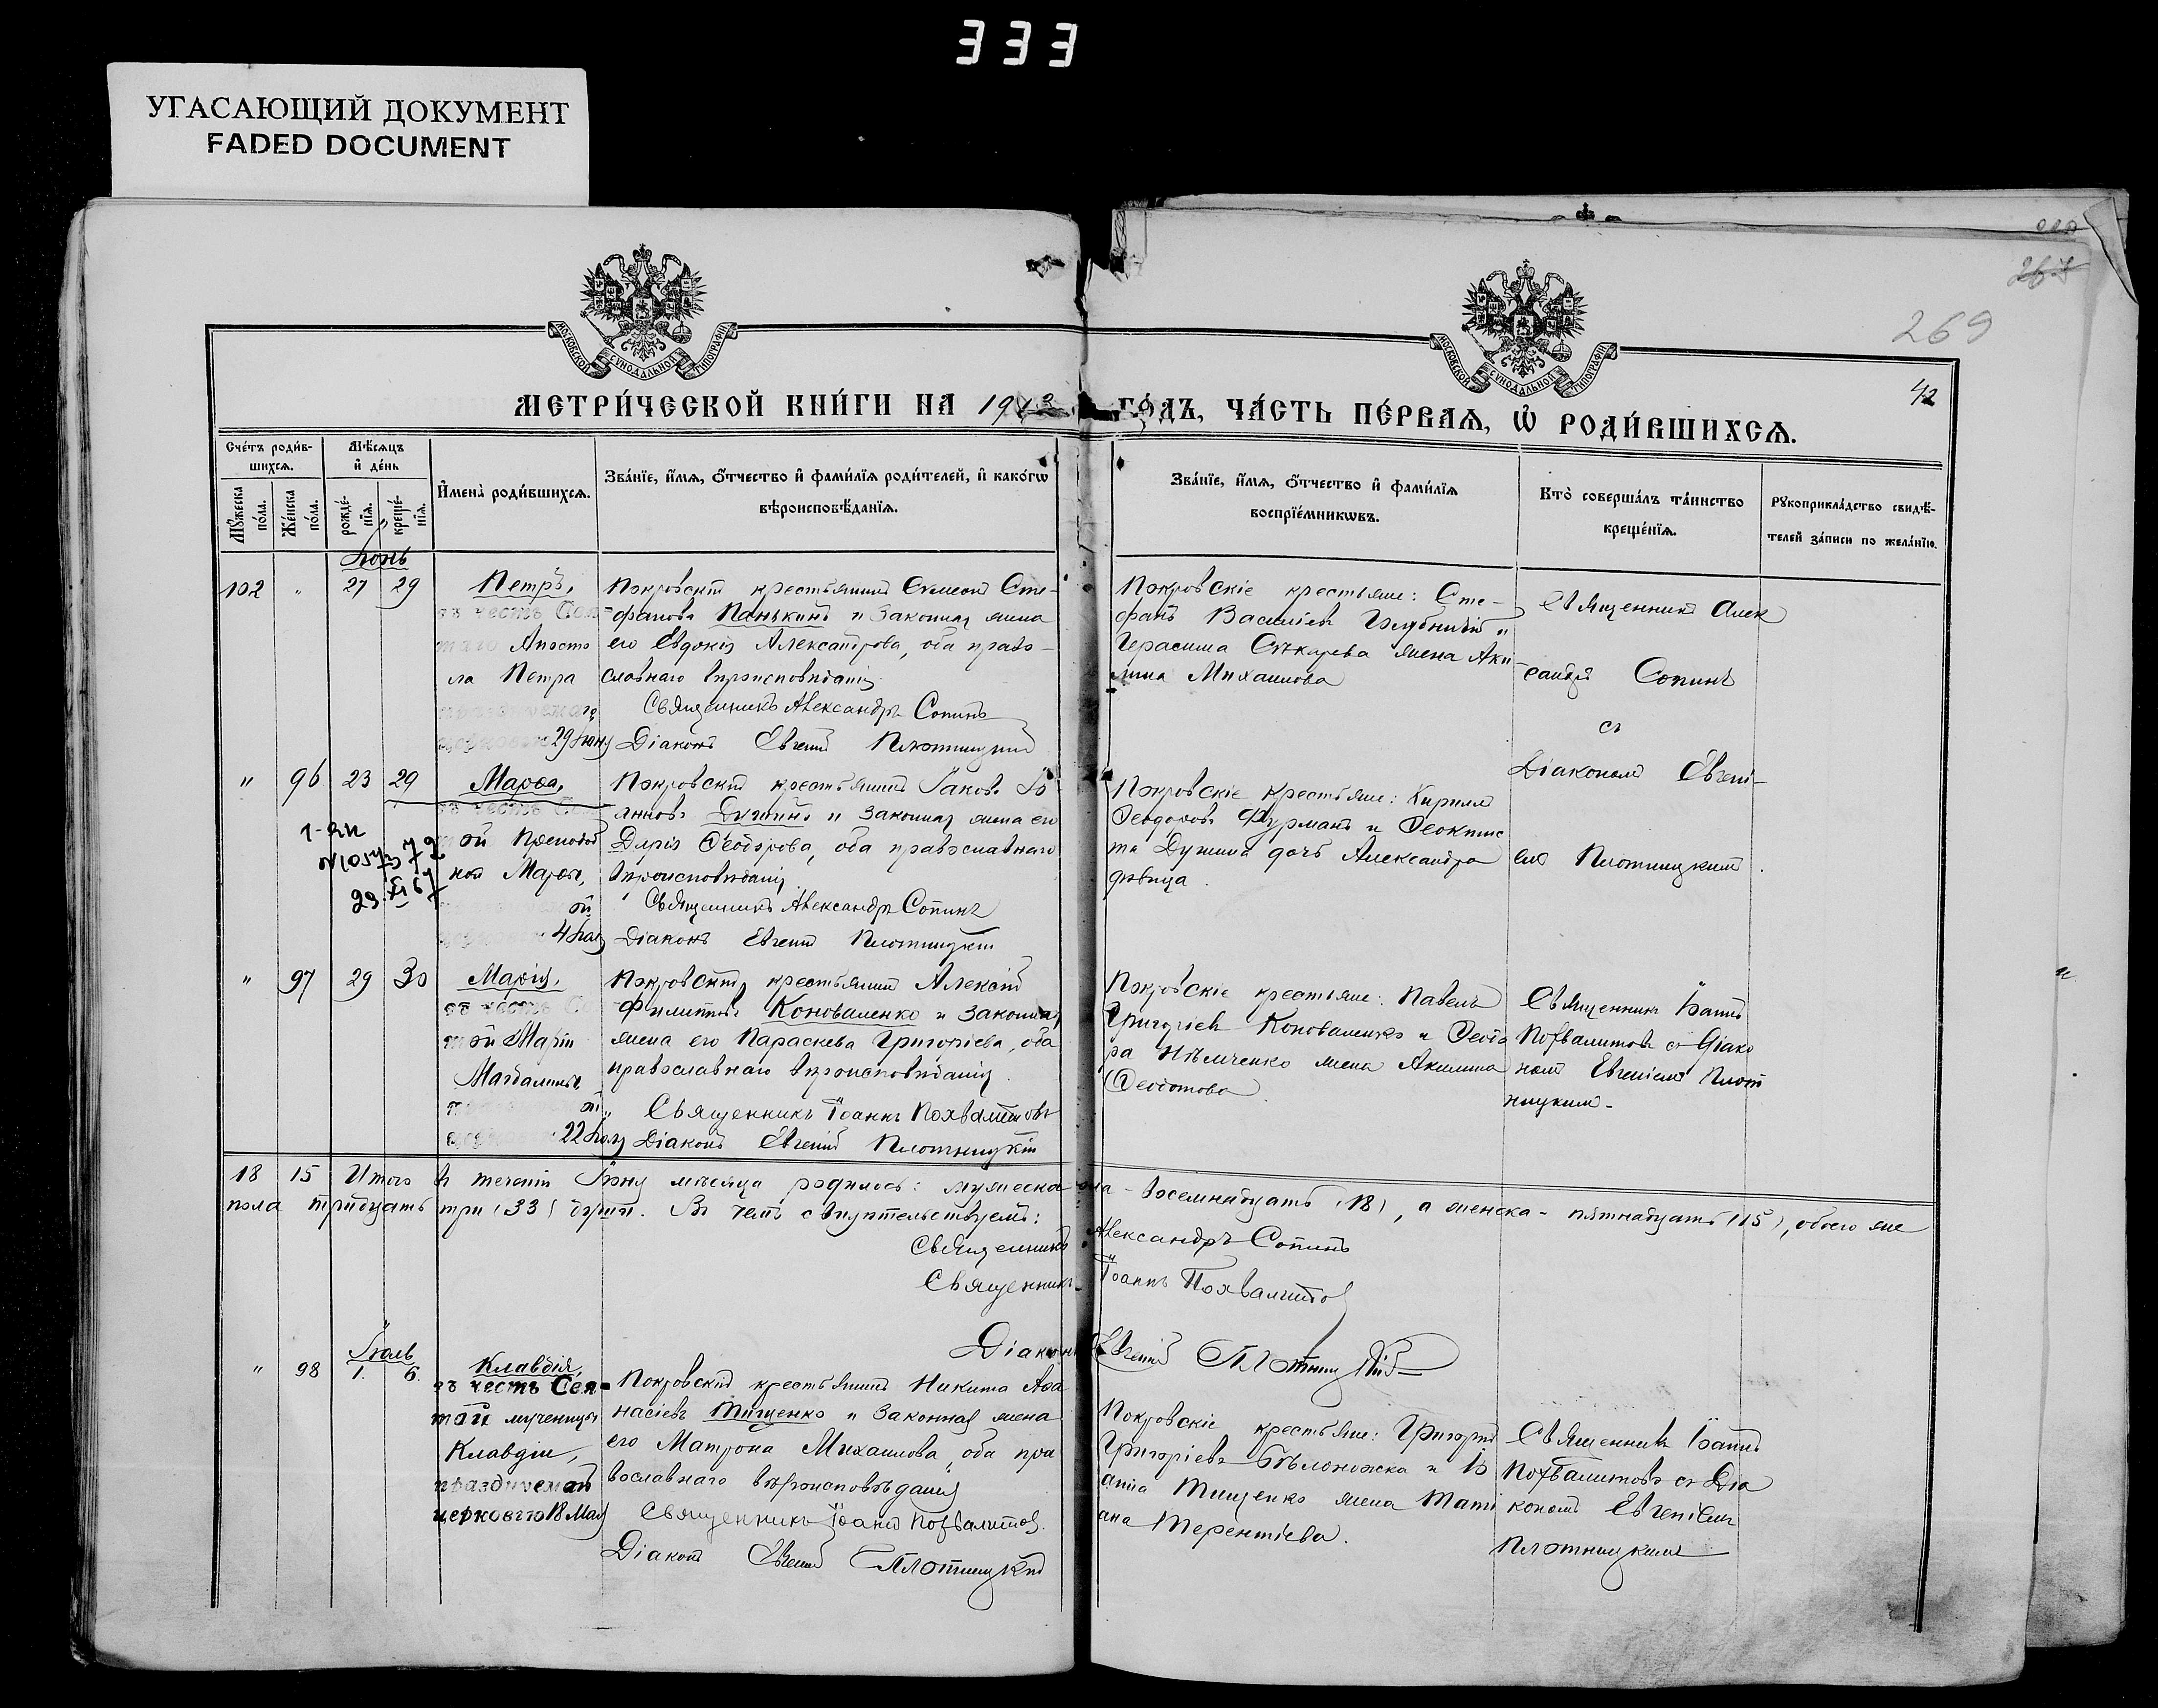 333
УГАСАЮЩИЙ ДОКУМЕНТ
FADED DOCUMENT
267
269
42
МОСКОВСКОЙ СѴНОДАЛЬНОЙ ТИПОГРАФІИ
МОСКОВСКОЙ СѴНОДАЛЬНОЙ ТИПОГРАФІИ
МЕТРИ́ЧЕСКОЙ КНИ́ГИ НА 191
ГО́ДЪ, ЧА́СТЬ ПЕ́РВАЯ, Ѡ РОДИ́ВШИХСЯ.
Сче́тъ роди́в-
шихся.
Мѣ́сяцъ
и де́нь
Мꙋ́жеска по́ла.
Же́нска по́ла.
рожде́-нїя.
креще́-нїя.
Имена̀ роди́вшихся.
Зва́нїе, и́мя, ѻ́тчество и фами́лїя роди́телей, и како́гѡ
вѣроисповѣ́данїя.
Зва́нїе, и́мя, ѻ́тчество и фами́лїя
воспрїе́мникѡвъ.
Кто̀ соверша́лъ та́инство
креще́нїя.
Рꙋкоприкла́дство свидѣ́-
телей за́писи по жела́нїю.
Іюнь
102 " 27 29
Петръ,
въ честь Свя-
таго Апосто
ла Петра
празднуемаго
церковію 29 Іюня
Покровскій крестьянинъ Симеонъ Сте-
фановъ Панькинъ и законная жена
его Евдокія Александрова, оба право-
славнаго вѣроисповѣданія
Священникъ Александръ Сопинъ
Діаконъ Евгеній Плотницкій
Покровскіе крестьяне: Сте-
фанъ Васильевъ и
Герасима жена Аки-
лина Михаилова
Священникъ Алек
сандръ Сопинъ
съ
Діакономъ Евгені-
емъ Плотницкимъ.
" 96 23 29
Марѳа,
въ честь Свя
той Преподоб
ной Марѳы,
ой
церковію 4 Іюля
Покровскій крестьянинъ Іаковъ Іо-
анновъ Дужинъ и законная жена его
Дарія Ѳеодорова, оба православнаго
вѣроисповѣданія
Священникъ Александръ Сопинъ
Діаконъ Евгеній Плотницкій
Покровскіе крестьяне: Кириллъ
Ѳеодоровъ Фурманъ и Ѳеоктис
та Дужина дочь Александра
дѣвица.
29. XI 67
" 97 29 30
Марія,
въ честь С
той Маріи
Магдалины
ой
церковію 22 Іюля
Покровскій крестьянинъ Алексій
Филипповъ Коноваленко и законная
жена его Параскева Григоріева, оба
православнаго вѣроисповѣданія.
Священникъ Іоаннъ Похвалитовъ
Діаконъ Евгеній Плотницкій
Покровскіе крестьяне: Павелъ
Григорьевъ Коноваленко и Ѳеодо
ра Нѣмченко жена Акилина
Ѳедотова.
Священникъ Іоаннъ
Похвалитовъ съ Діако
номъ Евгеніемъ Плот
ницкимъ.
18 15 Итого въ теченіи Іюня мѣсяца родилось: мужеска пола - восемнадцать (18), а женска - пятнадцать (15), обоего же
пола тридцать три (33) души. Въ чемъ свидѣтельствуемъ:
Священникъ Александръ Сопинъ
Священникъ Іоаннъ Похвалитовъ
Діаконъ Евгеній Плотницкій
Іюль
" 98 1 6
Клавдія,
въ честь Свя-
той мученицы
Клавдіи,
празднуемой
церковію 18 Мая
Покровскій крестьянинъ Никита Аѳа
насіевъ Тищенко и законная жена
его Матрона Михаилова, оба пра
вославнаго вѣроисповѣданія
Священникъ Іоаннъ Похвалитовъ.
Діаконъ Евгеній Плотницкій
Покровскіе крестьяне: Григорій
Григоріевъ Бѣлоножка и Іо
анна Тищенко жена Тати
ана Терентіева.
Священникъ Іоаннъ
Похвалитовъ съ Діа
кономъ Евгеніемъ
Плотницкимъ